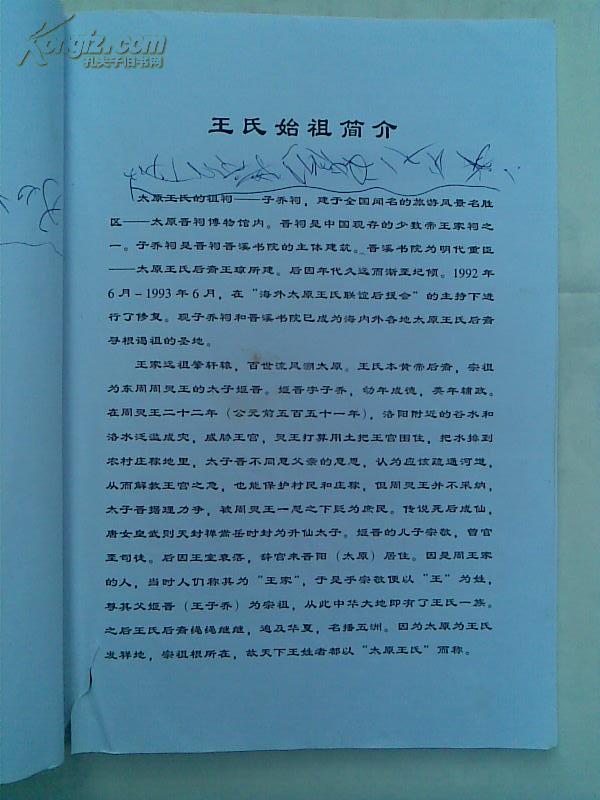 Kongfz.com
孔夫子旧书网
王氏始祖简介
太原王氏的祖祠——子乔祠，建于全国闻名的旅游风景名胜
区——太原晋祠博物馆内。晋祠是中国现存的少数帝王家祠之
一。子乔祠是晋祠晋溪书院的主体建筑。晋溪书院为明代重臣
——太原王氏后裔王琼所建。后因年代久远而渐至圮倾。1992年
6月-1993年6月，在“海外太原王氏联谊后援会”的主持下进
行了修复。现子乔祠和晋溪书院已成为海内外各地太原王氏后裔
寻根谒祖的圣地。
王家远祖肇轩辕，百世流风溯太原。王氏本黄帝后裔，宗祖
为东周周灵王的太子姬晋。姬晋字子乔，幼年成德，英年辅政。
在周灵王二十二年（公元前五百五十一年），洛阳附近的谷水和
洛水泛滥成灾，威胁王宫，灵王打算用土把王宫围住，把水排到
农村庄稼地里，太子晋不同意父亲的意思，认为应该疏通河道，
从而解救王宫之急，也能保护村民和庄稼，但周灵王并不采纳，
太子晋据理力争，被周灵王一怒之下贬为庶民。传说死后成仙，
唐女皇武则天封禅嵩岳时封为升仙太子。姬晋的儿子宗敬，曾官
至司徒。后因王室衰落，辞官来晋阳（太原）居住。因是周王家
的人，当时人们称其为“王家”，于是乎宗敬便以“王”为姓，
尊其父姬晋（王子乔）为宗祖，从此中华大地即有了王氏一族。
之后王氏后裔绳绳继继，遍及华夏，名播五洲。因为太原为王氏
发祥地，宗祖根所在，故天下王姓者都以“太原王氏”而称。